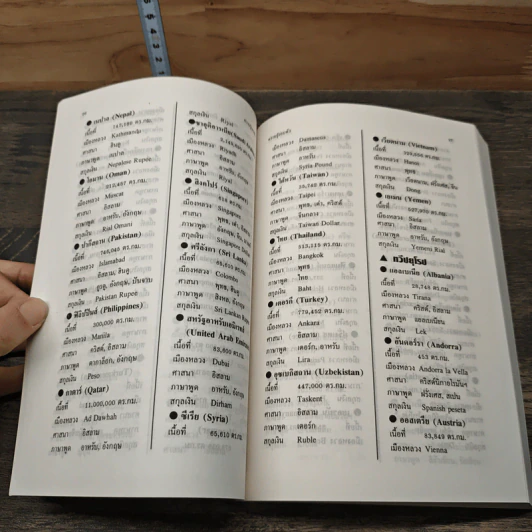 ● เนปาล (Nepal)
เนื้อที่ ตร.กม.
เมืองหลวง Kathmandu
ศาสนา ฮินดู
ภาษาพูด เนปาล
สกุลเงิน Nepalese Rupee
● โอมาน (Oman)
เนื้อที่ ตร.กม.
เมืองหลวง Muscat
ศาสนา อิสลาม
ภาษาพูด อาหรับ, อังกฤษ
สกุลเงิน Rial Omani
● ปากีสถาน (Pakistan)
เนื้อที่ ตร.กม.
เมืองหลวง Islamabad
ศาสนา อิสลาม, ฮินดู
ภาษาพูด อูรดู, อังกฤษ,
สกุลเงิน Pakistan Rupee
● ฟิลิปปินส์ (Philippines)
เนื้อที่ 300,000 ตร.กม.
เมืองหลวง Manila
ศาสนา คริสต์, อิสลาม
ภาษาพูด ตากาล็อก, อังกฤษ
สกุลเงิน Peso
● กาตาร์ (Qatar)
เนื้อที่ 11,000,000 ตร.กม.
เมืองหลวง Ad Dawhah
ศาสนา อิสลาม
ภาษาพูด อาหรับ, อังกฤษ
สกุลเงิน Riyal
เนื้อที่
เมืองหลวง
ศาสนา อิสลาม
ภาษาพูด อาหรับ
สกุลเงิน Riyal
● สิงคโปร์ (Singapore)
เนื้อที่ ตร.กม.
เมืองหลวง Singapore
ศาสนา พุทธ,
ภาษาพูด อังกฤษ, จีน
สกุลเงิน Singapore
● ศรีลังกา (Sri Lanka)
เนื้อที่ ตร.กม.
เมืองหลวง Colombo
ศาสนา พุทธ, ฮินดู
ภาษาพูด สิงหล,
สกุลเงิน Sri Lankan
● สหรัฐอาหรับเอมิเรตส์
(United Arab
เนื้อที่ 83,600 ตร.กม.
เมืองหลวง Dubai
ศาสนา อิสลาม
ภาษาพูด อาหรับ, อังกฤษ
สกุลเงิน Dirham
● ซีเรีย (Syria)
เนื้อที่ ตร.กม.
เมืองหลวง Damascus
ศาสนา อิสลาม
ภาษาพูด อาหรับ
สกุลเงิน Syria Pound
● ไต้หวัน (Taiwan)
เนื้อที่ ตร.กม.
เมืองหลวง Taipei
ศาสนา พุทธ, เต๋า, คริสต์
ภาษาพูด จีนกลาง
สกุลเงิน Taiwan Dollar
● ไทย (Thailand)
เนื้อที่ 513,115 ตร.กม.
เมืองหลวง Bangkok
ศาสนา พุทธ
ภาษาพูด ไทย
สกุลเงิน Baht
● เตอรกี (Turkey)
เนื้อที่ 779,452 ตร.กม.
เมืองหลวง Ankara
ศาสนา อิสลาม
ภาษาพูด เตอร์ก, อาหรับ
สกุลเงิน Lira
● อุซเบกิสถาน (Uzbekistan)
เนื้อที่ 447,000 ตร.กม.
เมืองหลวง Taskent
ศาสนา อิสลาม
ภาษาพูด เตอร์ก
สกุลเงิน Ruble
● เวียดนาม (Vietnam)
เนื้อที่ ตร.กม.
เมืองหลวง Hanoi
ศาสนา พุทธ
ภาษาพูด เวียดนาม,
สกุลเงิน Dong
● เยเมน (Yemen)
เนื้อที่ ตร.กม.
เมืองหลวง
ศาสนา อิสลาม
ภาษาพูด อาหรับ, อังกฤษ
สกุลเงิน Yemeni Rial
▲ ทวีปยุโรป
● แอลเบเนีย (Albania)
เนื้อที่ 28,748 ตร.กม.
เมืองหลวง Tirana
ศาสนา คริสต์, อิสลาม
ภาษาพูด
สกุลเงิน Lek
● อันดอร์รา (Andorra)
เนื้อที่ 453 ตร.กม.
เมืองหลวง Andorra la Vella
ศาสนา คริสต์นิกายโรมันฯ
ภาษาพูด ฝรั่งเศส, สเปน
สกุลเงิน Spanish peseta
● ออสเตรีย (Austria)
เนื้อที่ 83,849 ตร.กม.
เมืองหลวง Vienna